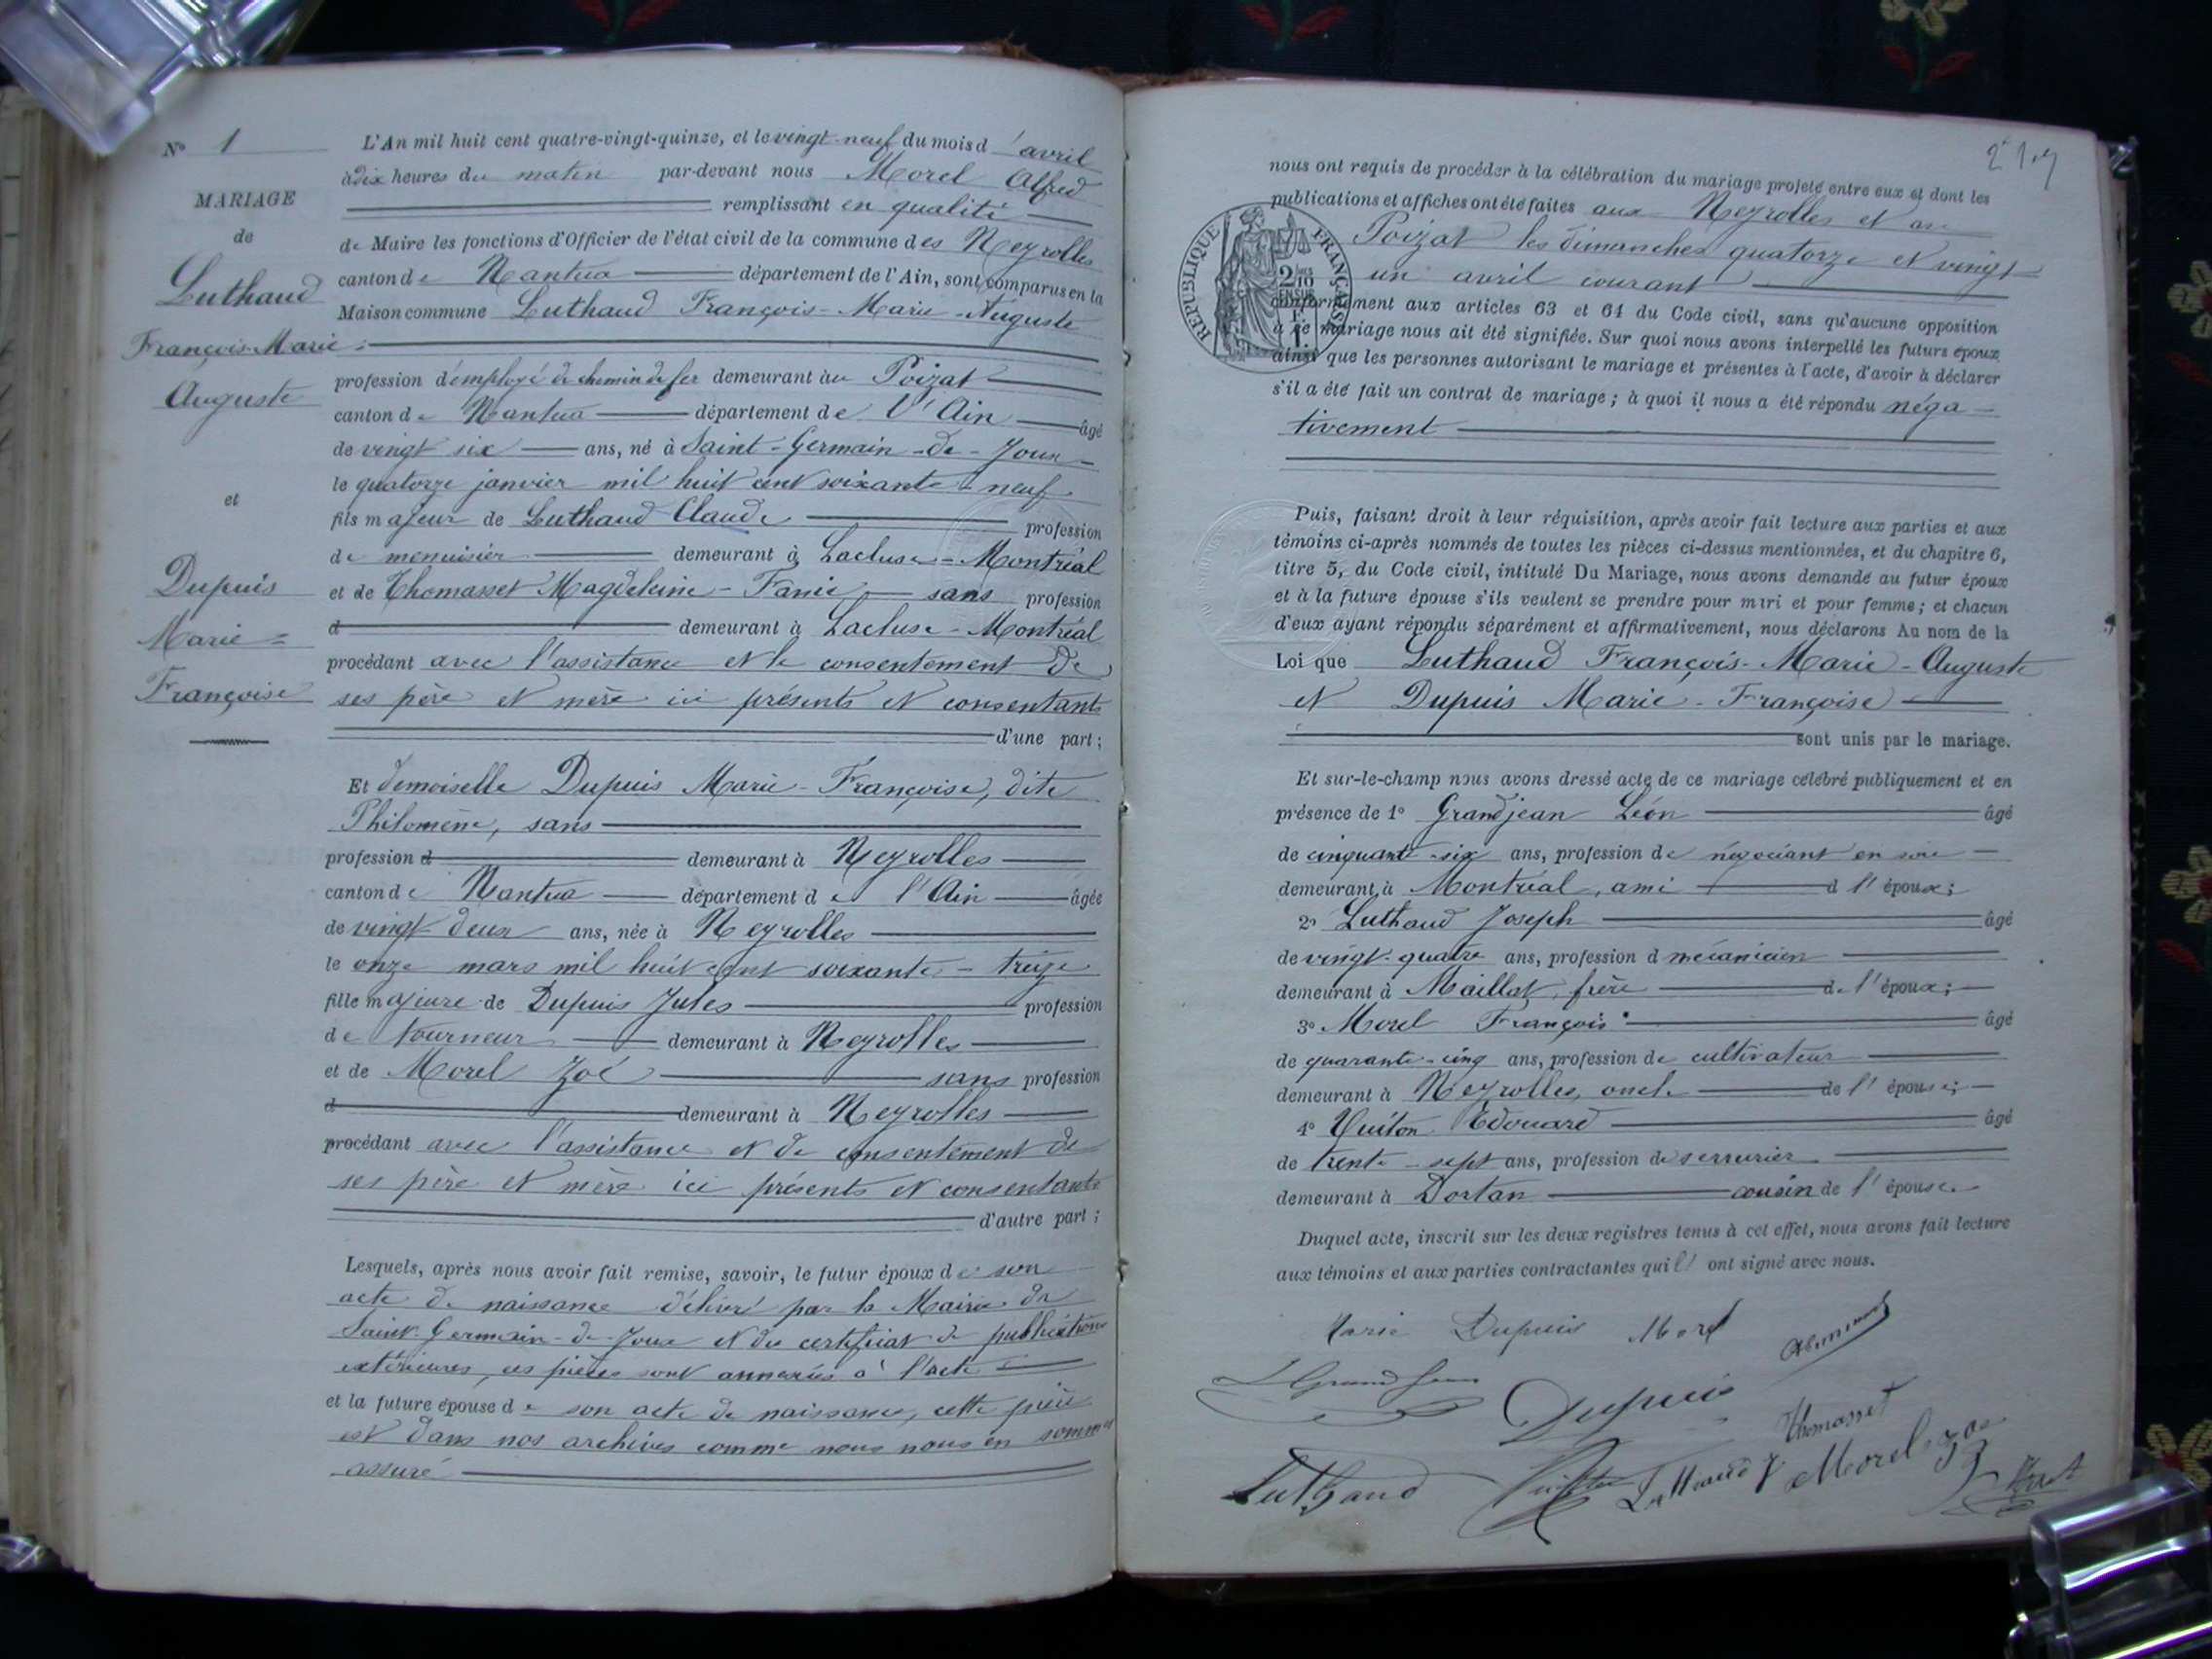 N° 1
MARIAGE
de
Luthaud
François-Marie-
Auguste
et
Dupuis
Marie-
Françoise
L'An mil huit cent quatre-vingt-quinze, et le vingt-neuf du mois d'avril
à dix heures du matin par-devant nous Morel Alfred
remplissant en qualité
de Maire les fonctions d'Officier de l'état civil de la commune des Neyrolles
canton de Nantua département de l'Ain, sont comparus en la
Maison commune Luthaud François-Marie-Auguste
profession d'employé de chemin de fer demeurant au Poizat
canton de Nantua département de l'Ain âgé
de vingt six ans, né à Saint-Germain-de-Joux
le quatorze janvier mil huit cent soixante-neuf
fils majeur de Luthaud Claude profession
de menuisier demeurant à Lacluse-Montréal
et de Thomasset Magdeleine-Fanie sans profession
d demeurant à Lacluse-Montréal
procédant avec l'assistance et le consentement de
ses père et mère ici présents et consentants
d'une part;
Et demoiselle Dupuis Marie-Françoise, dite
Philomène, sans
profession d demeurant à Neyrolles
canton de Nantua département de l'Ain âgée
de vingt deux ans, née à Neyrolles
le onze mars mil huit cent soixante-treize
fille majeure de Dupuis Jules profession
de tourneur demeurant à Neyrolles
et de Morel Zoé sans profession
d demeurant à Neyrolles
procédant avec l'assistance et de consentement de
ses père et mère ici présents et consentants
d'autre part;
Lesquels, après nous avoir fait remise, savoir, le futur époux de son
acte de naissance délivré par la Mairie de
Saint-Germain-de-Joux et du certificat de publications
extérieures, ces pièces sont annexées à l'acte
et la future épouse de son acte de naissance, cette pièce
est dans nos archives comme nous nous en sommes
assuré
nous ont requis de procéder à la célébration du mariage projeté entre eux et dont les
publications et affiches ont été faites aux Neyrolles et au
Poizat les dimanches quatorze et vingt
un avril courant
conformément aux articles 63 et 64 du Code civil, sans qu'aucune opposition
à ce mariage nous ait été signifiée. Sur quoi nous avons interpellé les futurs époux
ainsi que les personnes autorisant le mariage et présentes à l'acte, d'avoir à déclarer
s'il a été fait un contrat de mariage; à quoi il nous a été répondu néga-
tivement
RÉPUBLIQUE FRANÇAISE
2/10 EN SUS
Puis, faisant droit à leur réquisition, après avoir fait lecture aux parties et aux
témoins ci-après nommés de toutes les pièces ci-dessus mentionnées, et du chapitre 6,
titre 5, du Code civil, intitulé Du Mariage, nous avons demandé au futur époux
et à la future épouse s'ils veulent se prendre pour mari et pour femme; et chacun
d'eux ayant répondu séparément et affirmativement, nous déclarons Au nom de la
Loi que Luthaud François-Marie-Auguste
et Dupuis Marie-Françoise
sont unis par le mariage.
Et sur-le-champ nous avons dressé acte de ce mariage célébré publiquement et en
présence de 1° Grandjean Léon âgé
de cinquante-six ans, profession de négociant en soie
demeurant à Montréal, ami d l'époux;
2° Luthaud Joseph âgé
de vingt-quatre ans, profession d mécanicien
demeurant à Maillat, frère de l'époux;
3° Morel François âgé
de quarante-cinq ans, profession de cultivateur
demeurant à Neyrolles, oncle de l'épouse;
4° Quiton Edouard âgé
de trente-sept ans, profession de serrurier
demeurant à Dortan cousin de l'épouse.
Duquel acte, inscrit sur les deux registres tenus à cet effet, nous avons fait lecture
aux témoins et aux parties contractantes qui ont signé avec nous.
Marie Dupuis Morel
L Grandjean
Dupuis Thomasset
Luthaud Luthaud J Morel Zoé